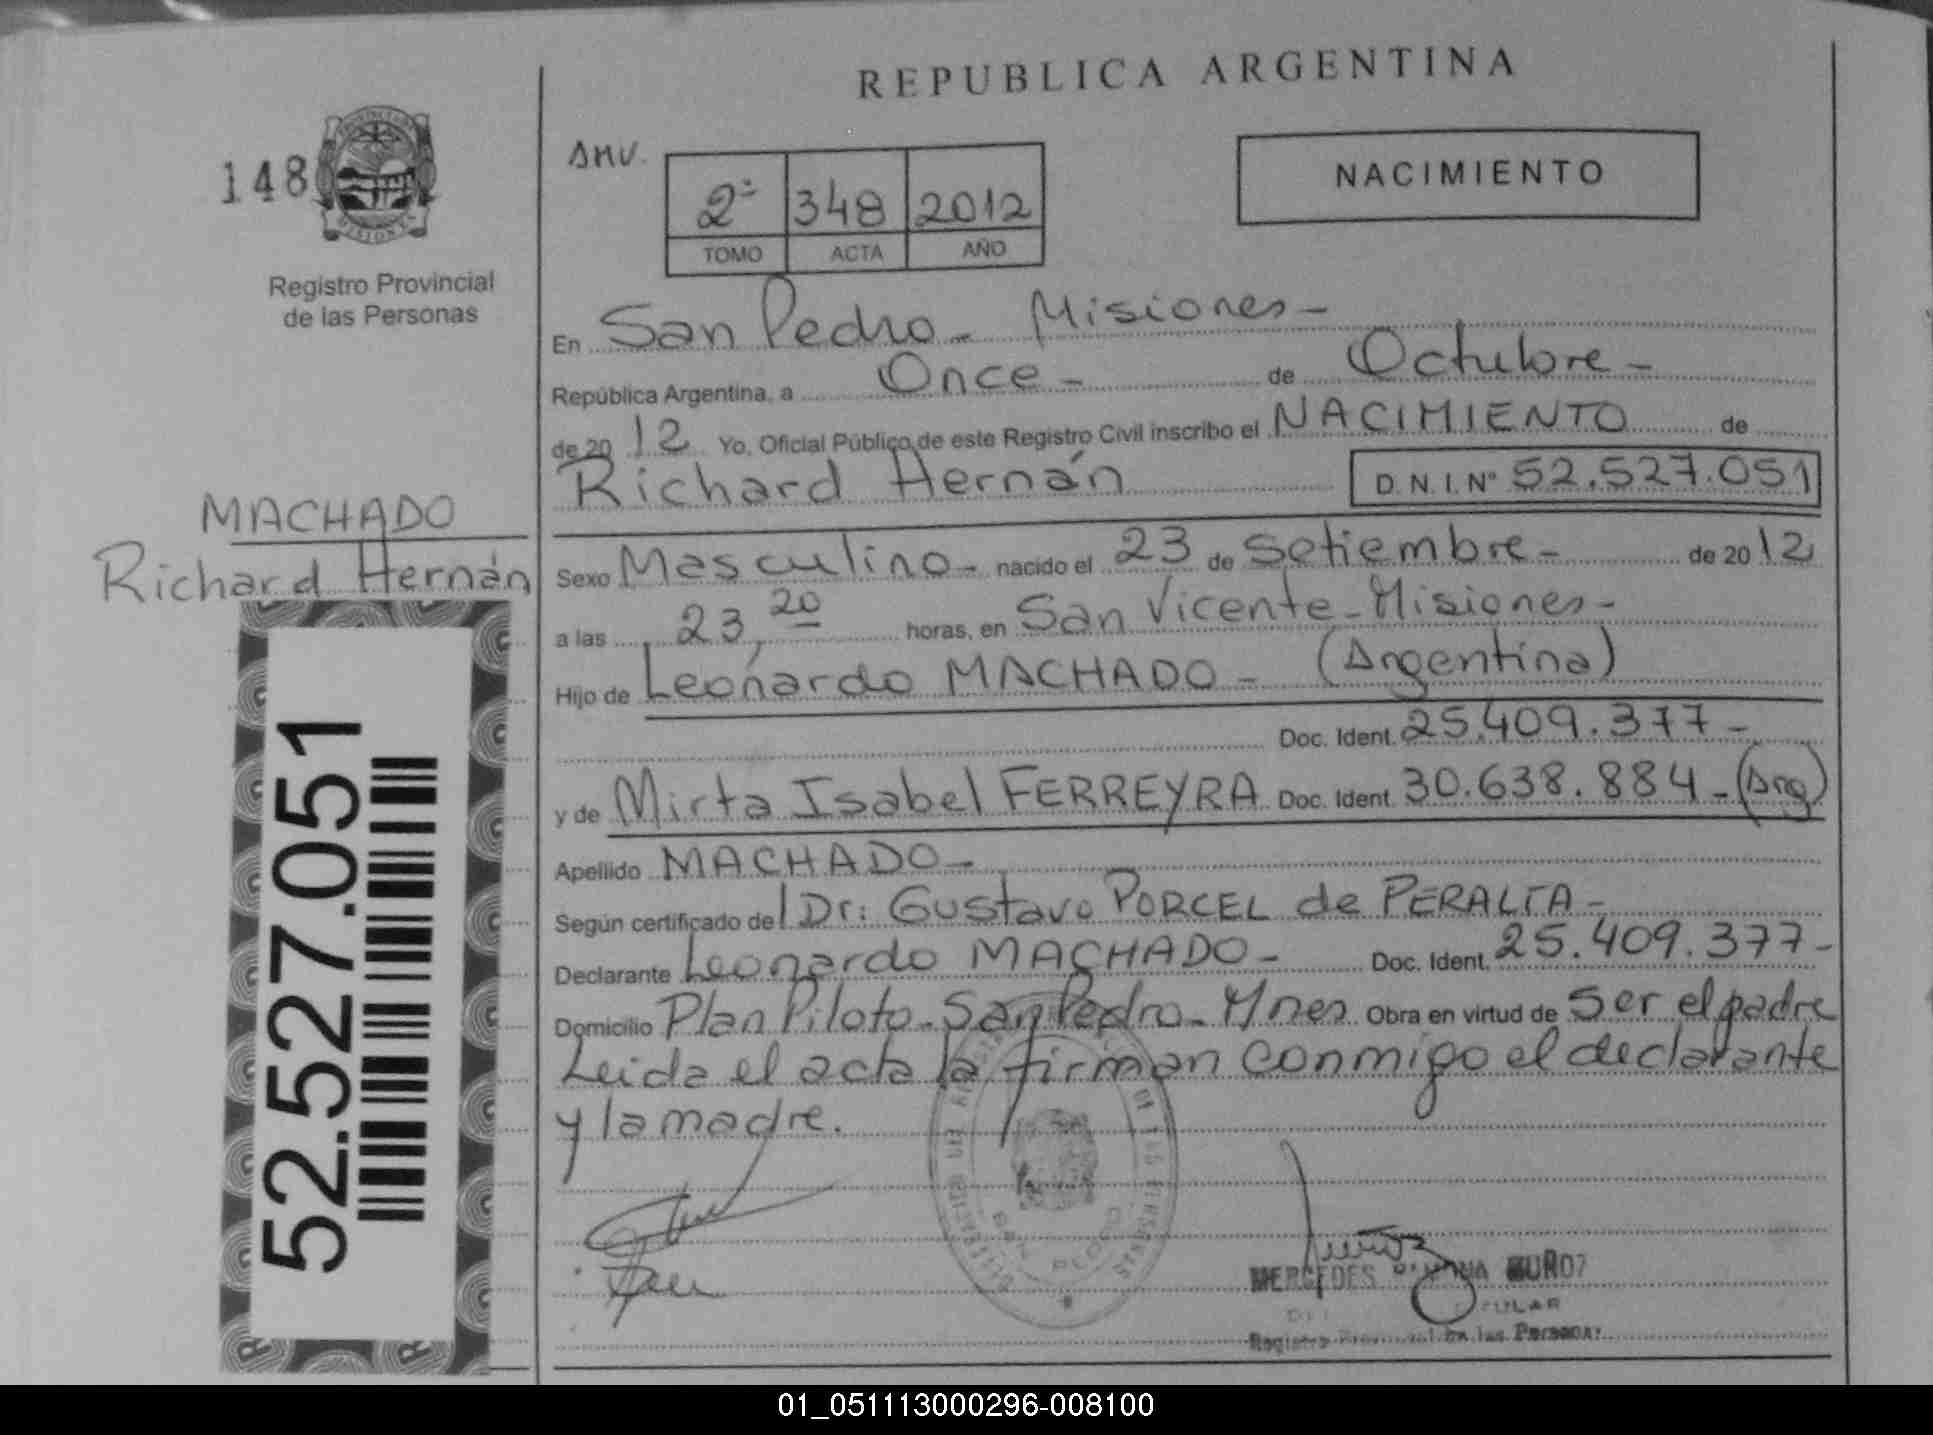 REPUBLICA ARGENTINA
148
PROVINCIA DE
MISIONES
Registro Provincial
de las Personas
2º 348 2012
TOMO ACTA AÑO
NACIMIENTO
En San Pedro - Misiones -
República Argentina, a Once - de Octubre -
de 20 12 Yo, Oficial Público de este Registro Civil inscribo el NACIMIENTO de
Richard Hernán D.N.I.Nº 52.527.051
MACHADO
Richard Hernán
52.527.051
Sexo Masculino - nacido el 23 de Setiembre - de 20 12
a las 23,20 horas, en San Vicente - Misiones -
Hijo de Leonardo MACHADO - (Argentina)
Doc. Ident. 25.409.377 -
y de Mirta Isabel FERREYRA Doc. Ident. 30.638.884 - (Arg)
Apellido MACHADO -
Según certificado del Dr: Gustavo PORCEL de PERALTA -
Declarante Leonardo MACHADO - Doc. Ident. 25.409.377 -
Domicilio Plan Piloto - San Pedro - Mnes Obra en virtud de ser el padre
Leida el acta la firman conmigo el declarante
y la madre.
SAN PEDRO
MERCEDES
Registro Provincial de las Personas
01_051113000296-008100